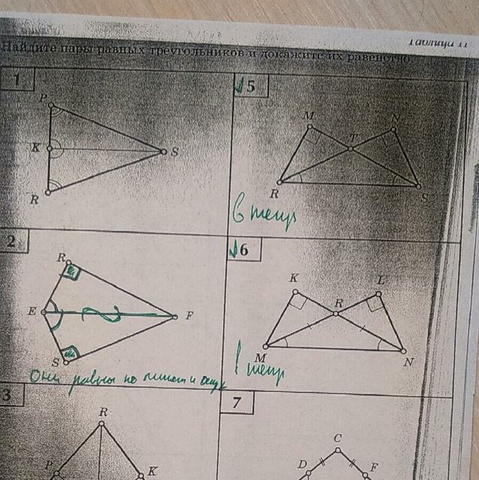 Таблица 11
Найдите пары равных треугольников и докажите их равенство.
1
P
K
S
R
✓5
M
N
T
R
S
в тетр
2
R
E
F
S
Они равны по
✓6
K
L
R
M
N
в тетр
3
R
P
K
7
C
D
F